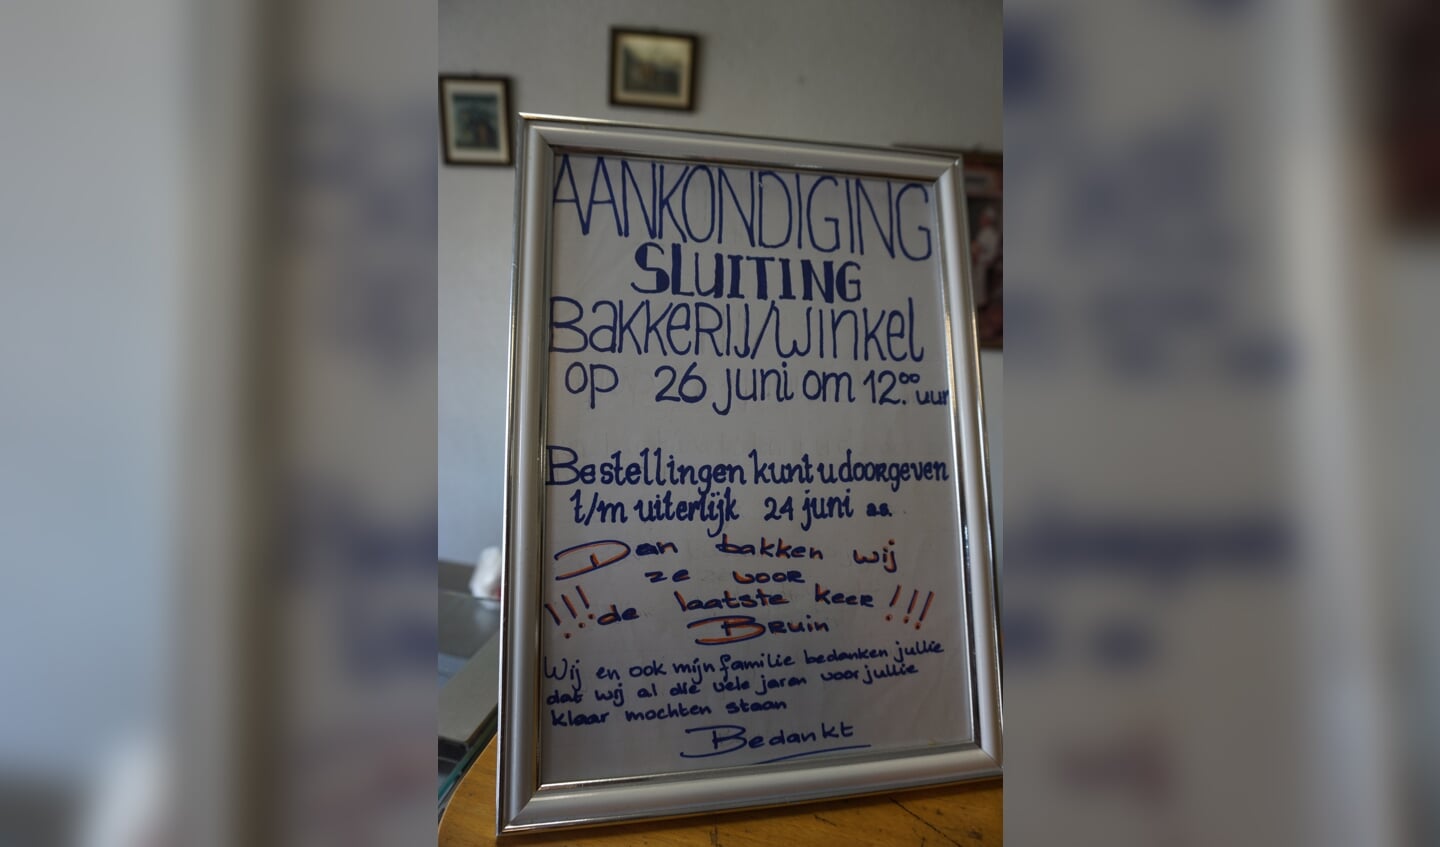 AANKONDIGING
SLUITING
BAKKERIJ/WINKEL
op 26 juni om 12.00 uur
Bestellingen kunt u doorgeven
t/m uiterlijk 24 juni a.s.
Dan bakken wij
ze voor
!!! de laatste keer !!!
Bruin
Wij en ook mijn familie bedanken jullie
dat wij al die vele jaren voor jullie
klaar mochten staan
Bedankt